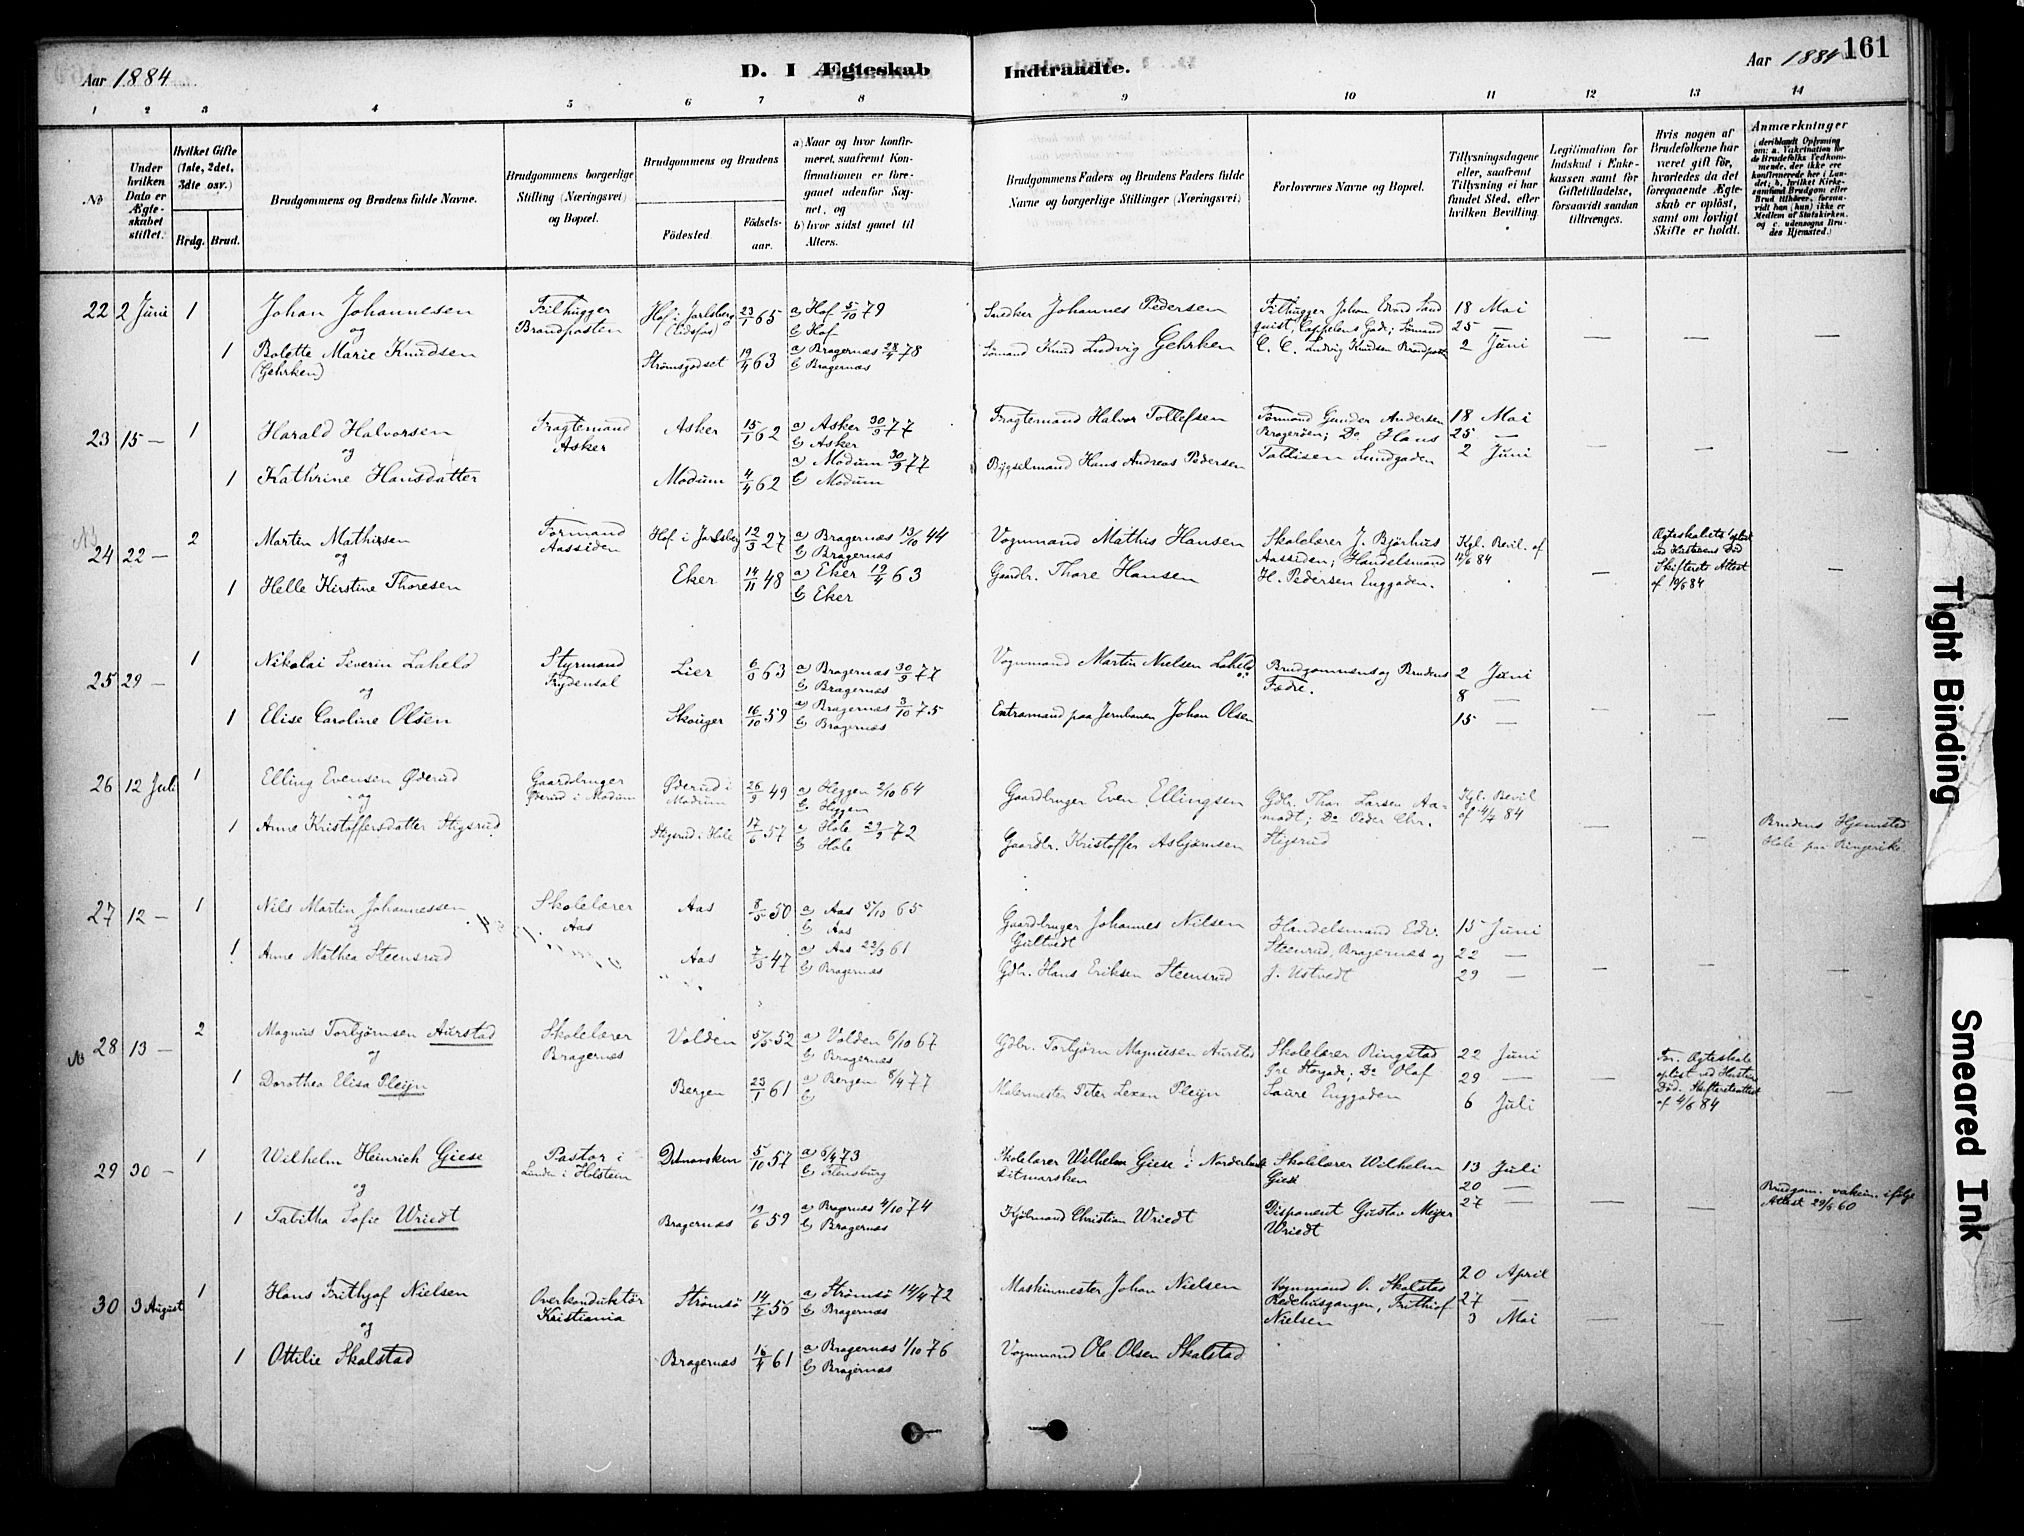 161
Aar 1884
D. I Ægteskab Indtraadte.
Aar 1884
1 2 3 4 5 6 7 8 9 10 11 12 13 14
No
Under hvilken Dato er Ægteskabet stiftet.
Hvilket Gifte (1ste, 2det, 3die osv.)
Brdg. Brud.
Brudgommens og Brudens fulde Navne.
Brudgommens borgerlige Stilling (Næringsvei) og Bopæl.
Brudgommens og Brudens
Fødested
Fødselsaar.
a) Naar og hvor konfirmeret, saafremt Konfirmationen er foregaaet udenfor Sognet, og
b) hvor sidst gaaet til Alters.
Brudgommens Faders og Brudens Faders fulde Navne og borgerlige Stillinger (Næringsvei)
Forlovernes Navne og Bopæl.
Tillysningsdagene eller, saafremt Tillysning ei har fundet Sted, efter hvilken Bevilling.
Legitimation for Indskud i Enkekassen samt for Giftetilladelse, forsaavidt saadan tiltrænges.
Hvis nogen af Brudefolkene har været gift før, hvorledes da det foregaaende Ægteskab er opløst, samt om lovligt Skifte er holdt.
Anmærkninger
(deriblandt Oplysning om: a. Vakcination for de Brudefolks Vedkommende, der ikke ere konfirmerede her i Landet; b. hvilket Kirkesamfund Brudgom eller Brud tilhører, forsaavidt han (hun) ikke er Medlem af Statskirken, og c. udensogns Brudes Hjemsted.)
22 2 Juni 1 Johan Johannesen Filhugger Brandposten Hof i Jarlsberg (Eidsfos) 23/1 65 a) Hof 5/10 79 b) Hof Snedker Johannes Pedersen Filhugger Johan Edvard Sandquist, Cappelens Gade; Sømand C. C. Ludvig Knudsen Brandposten 18 Mai 25 — 2 Juni — — —
og
1 Bolette Marie Knudsen (Gehrken) Strømsgodset 19/4 63 a) Bragernæs 28/4 78 b) Bragernæs Sømand Knud Ludvig Gehrken
23 15 — 1 Harald Halvorsen Fragtemand Asker Asker 15/1 62 a) Asker 30/9 77 b) Asker Fragtemand Halvor Tollefsen Formand Gunder Andersen Bragerøen; Do Hans Tollisen Lundgaden 18 Mai 25 — 2 Juni — — —
og
1 Kathrine Hansdatter Modum 4/4 62 a) Modum 30/9 77 b) Modum Bygselmand Hans Andreas Pedersen
24 22 — 2 Martin Mathisen Formand Aassiden Hof i Jarlsberg 12/3 27 a) Bragernæs 13/10 44 b) Bragernæs Vognmand Mathis Hansen Skolelærer J. Bjørhus Aassiden; Handelsmand H. Pedersen Enggaden. Kgl. Bevil. af 14/6 84 — Ægteskabets opløst ved Hustruens Død Skifterets Attest af 19/6 84 —
og
1 Helle Kirstine Thoresen Eker 14/11 48 a) Eker 19/4 63 b) Eker Gaardbr. Thore Hansen
25 29 — 1 Nikolai Severin Laheld Styrmand Frydendal Lier 6/6 63 a) Bragernæs 30/9 77 b) Bragernæs Vognmand Martin Nielsen Laheld Brudgommens og Brudens Fædre. 2 Juni 8 — 15 — — — —
og
1 Elise Caroline Olsen Skouger 16/10 59 a) Bragernæs 3/10 75 b) Bragernæs Extramand paa Jernbanen Johan Olsen
26 12 Juli 1 Elling Evensen Øderud Gaardbruger Øderud i Modum Øderud i Modum 26/9 49 a) Heggen 2/10 64 b) Heggen Gaardbruger Even Ellingsen Gdbr. Thor Larsen Aamodt; Do Peder Chr. Stigsrud Kgl. Bevil af 4/7 84 — — Brudens Hjemsted Hole paa Ringerike.
og
1 Anne Kristoffersdatter Stigsrud Stigsrud i Hole 17/6 57 a) Hole 29/9 72 b) Hole Gaardbr. Kristoffer Asbjørnsen
27 12 — 1 Nils Martin Johannessen Skolelærer Aas Aas 8/5 50 a) Aas 5/10 65 b) Aas Gaardbruger Johannes Nilsen Gultvedt Handelsmand Edv. Steenrud, Bragernæs og J. Ustvedt 15 Juni 22 — 29 — — — —
og
1 Anne Mathea Steensrud Aas 7/5 47 a) Aas 22/9 61 b) Bragernæs Gdbr. Hans Eriksen Steensrud
28 13 — 2 Magnus Torbjørnsen Aurstad Skolelærer Bragernæs Volden 5/5 52 a) Volden 6/10 67 b) Bragernæs Gdbr. Torbjørn Magnussen Aurstad Skolelærer Ringstad Øvre Storgade; Do Olaf Saure Enggaden 22 Juni 29 — 6 Juli — For. Ægteskab opløst ved Hustruens Død. Skifteretsattest af 4/6 84 —
og
1 Dorothea Elisa Pleijn Bergen 23/1 61 a) Bergen 8/4 77 b) Malermester Peter Lexan Pleijn
29 30 — 1 Wilhelm Heinrich Giese Pastor i Lunden i Holstein Ditmarsken 5/10 57 a) 6/4 73 b) Flensburg Skolelærer Wilhelm Giese i Norderhasted Ditmarsken Skolelærer Wilhelm Giese 13 Juli 20 — 27 — — — Brudgom. vakcin. ifølge Attest 29/5 60
og
1 Tabitha Sofie Wriedt Bragernæs 19/6 59 a) Bragernæs 4/10 74 b) Bragernæs Kjøbmand Christian Wriedt Disponent Gustav Meyer Wriedt
30 3 August 1 Hans Frithjof Nielsen Overkonduktør Kristiania Strømsø 14/7 55 a) Strømsø 14/4 72 b) Bragernæs Maskinmester Johan Nielsen Vognmand O. Skalstad Redehusgangen, Frithiof Nielsen 20 April 27 — 3 Mai — — —
og
1 Ottilie Skalstad Bragernæs 16/4 61 a) Bragernæs 1/10 76 b) Bragernæs Vognmand Ole Olsen Skalstad
Tight Binding
Smeared Ink